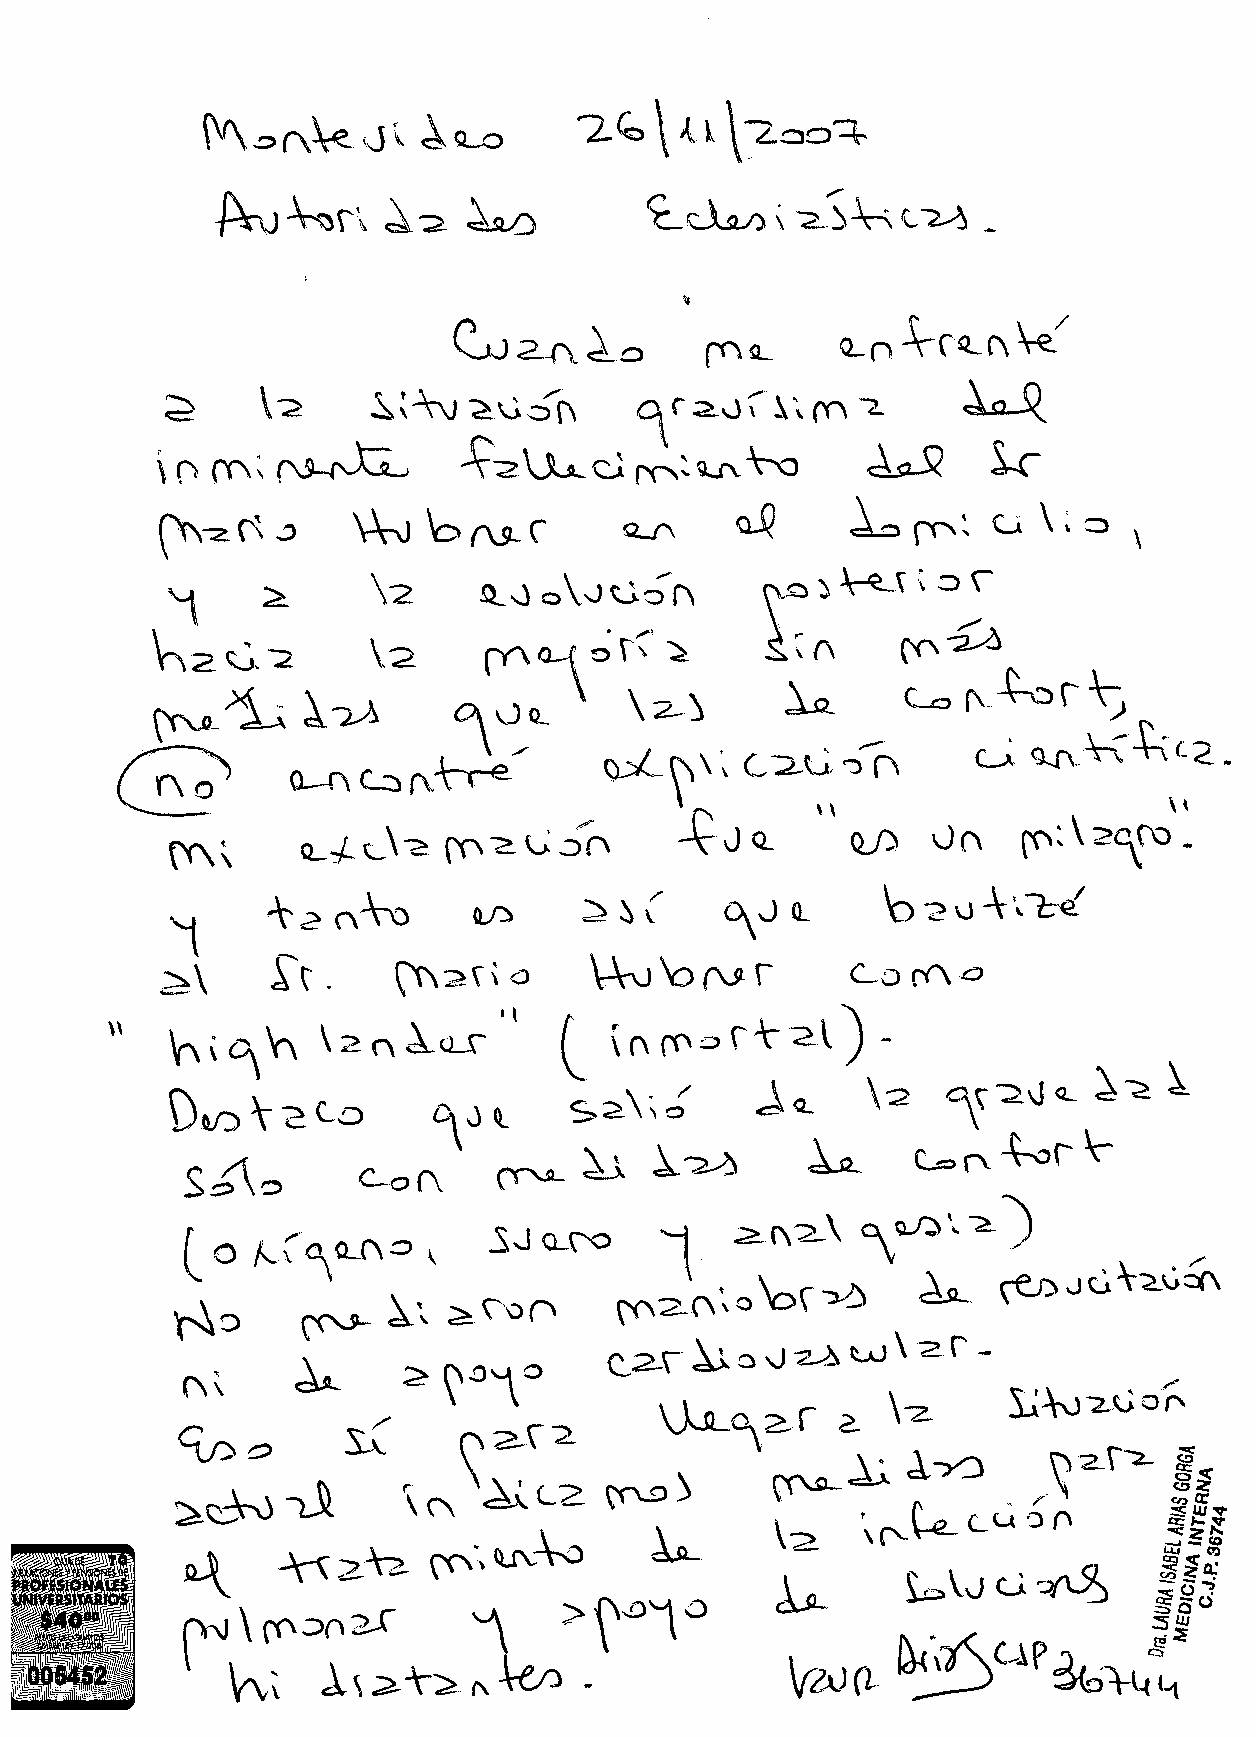 Montevideo 26/11/2007
Autoridades Eclesiásticas.
Cuando me enfrenté
a la situación gravísima del
inminente fallecimiento del Sr
Mario Hubner en el domicilio,
y a la evolución posterior
hacia la mejoría sin más
medidas que las de confort,
no encontré explicación científica.
Mi exclamación fue "es un milagro".
y tanto es así que bauticé
al Sr. Mario Hubner como
"highlander" (inmortal).
Destaco que salió de la gravedad
sólo con medidas de confort
(oxígeno, suero y analgesia)
No mediaron maniobras de resucitación
ni de apoyo cardiovascular.
Eso sí para llegar a la situación
actual indicamos medidas para
el tratamiento de la infección
pulmonar y apoyo de soluciones
hidratantes. Laura Arias CJP 36744
Dra. LAURA ISABEL ARIAS GORGA
MEDICINA INTERNA
C.J.P. 36744
PROFESIONALES
UNIVERSITARIOS
$40⁰⁰
005452